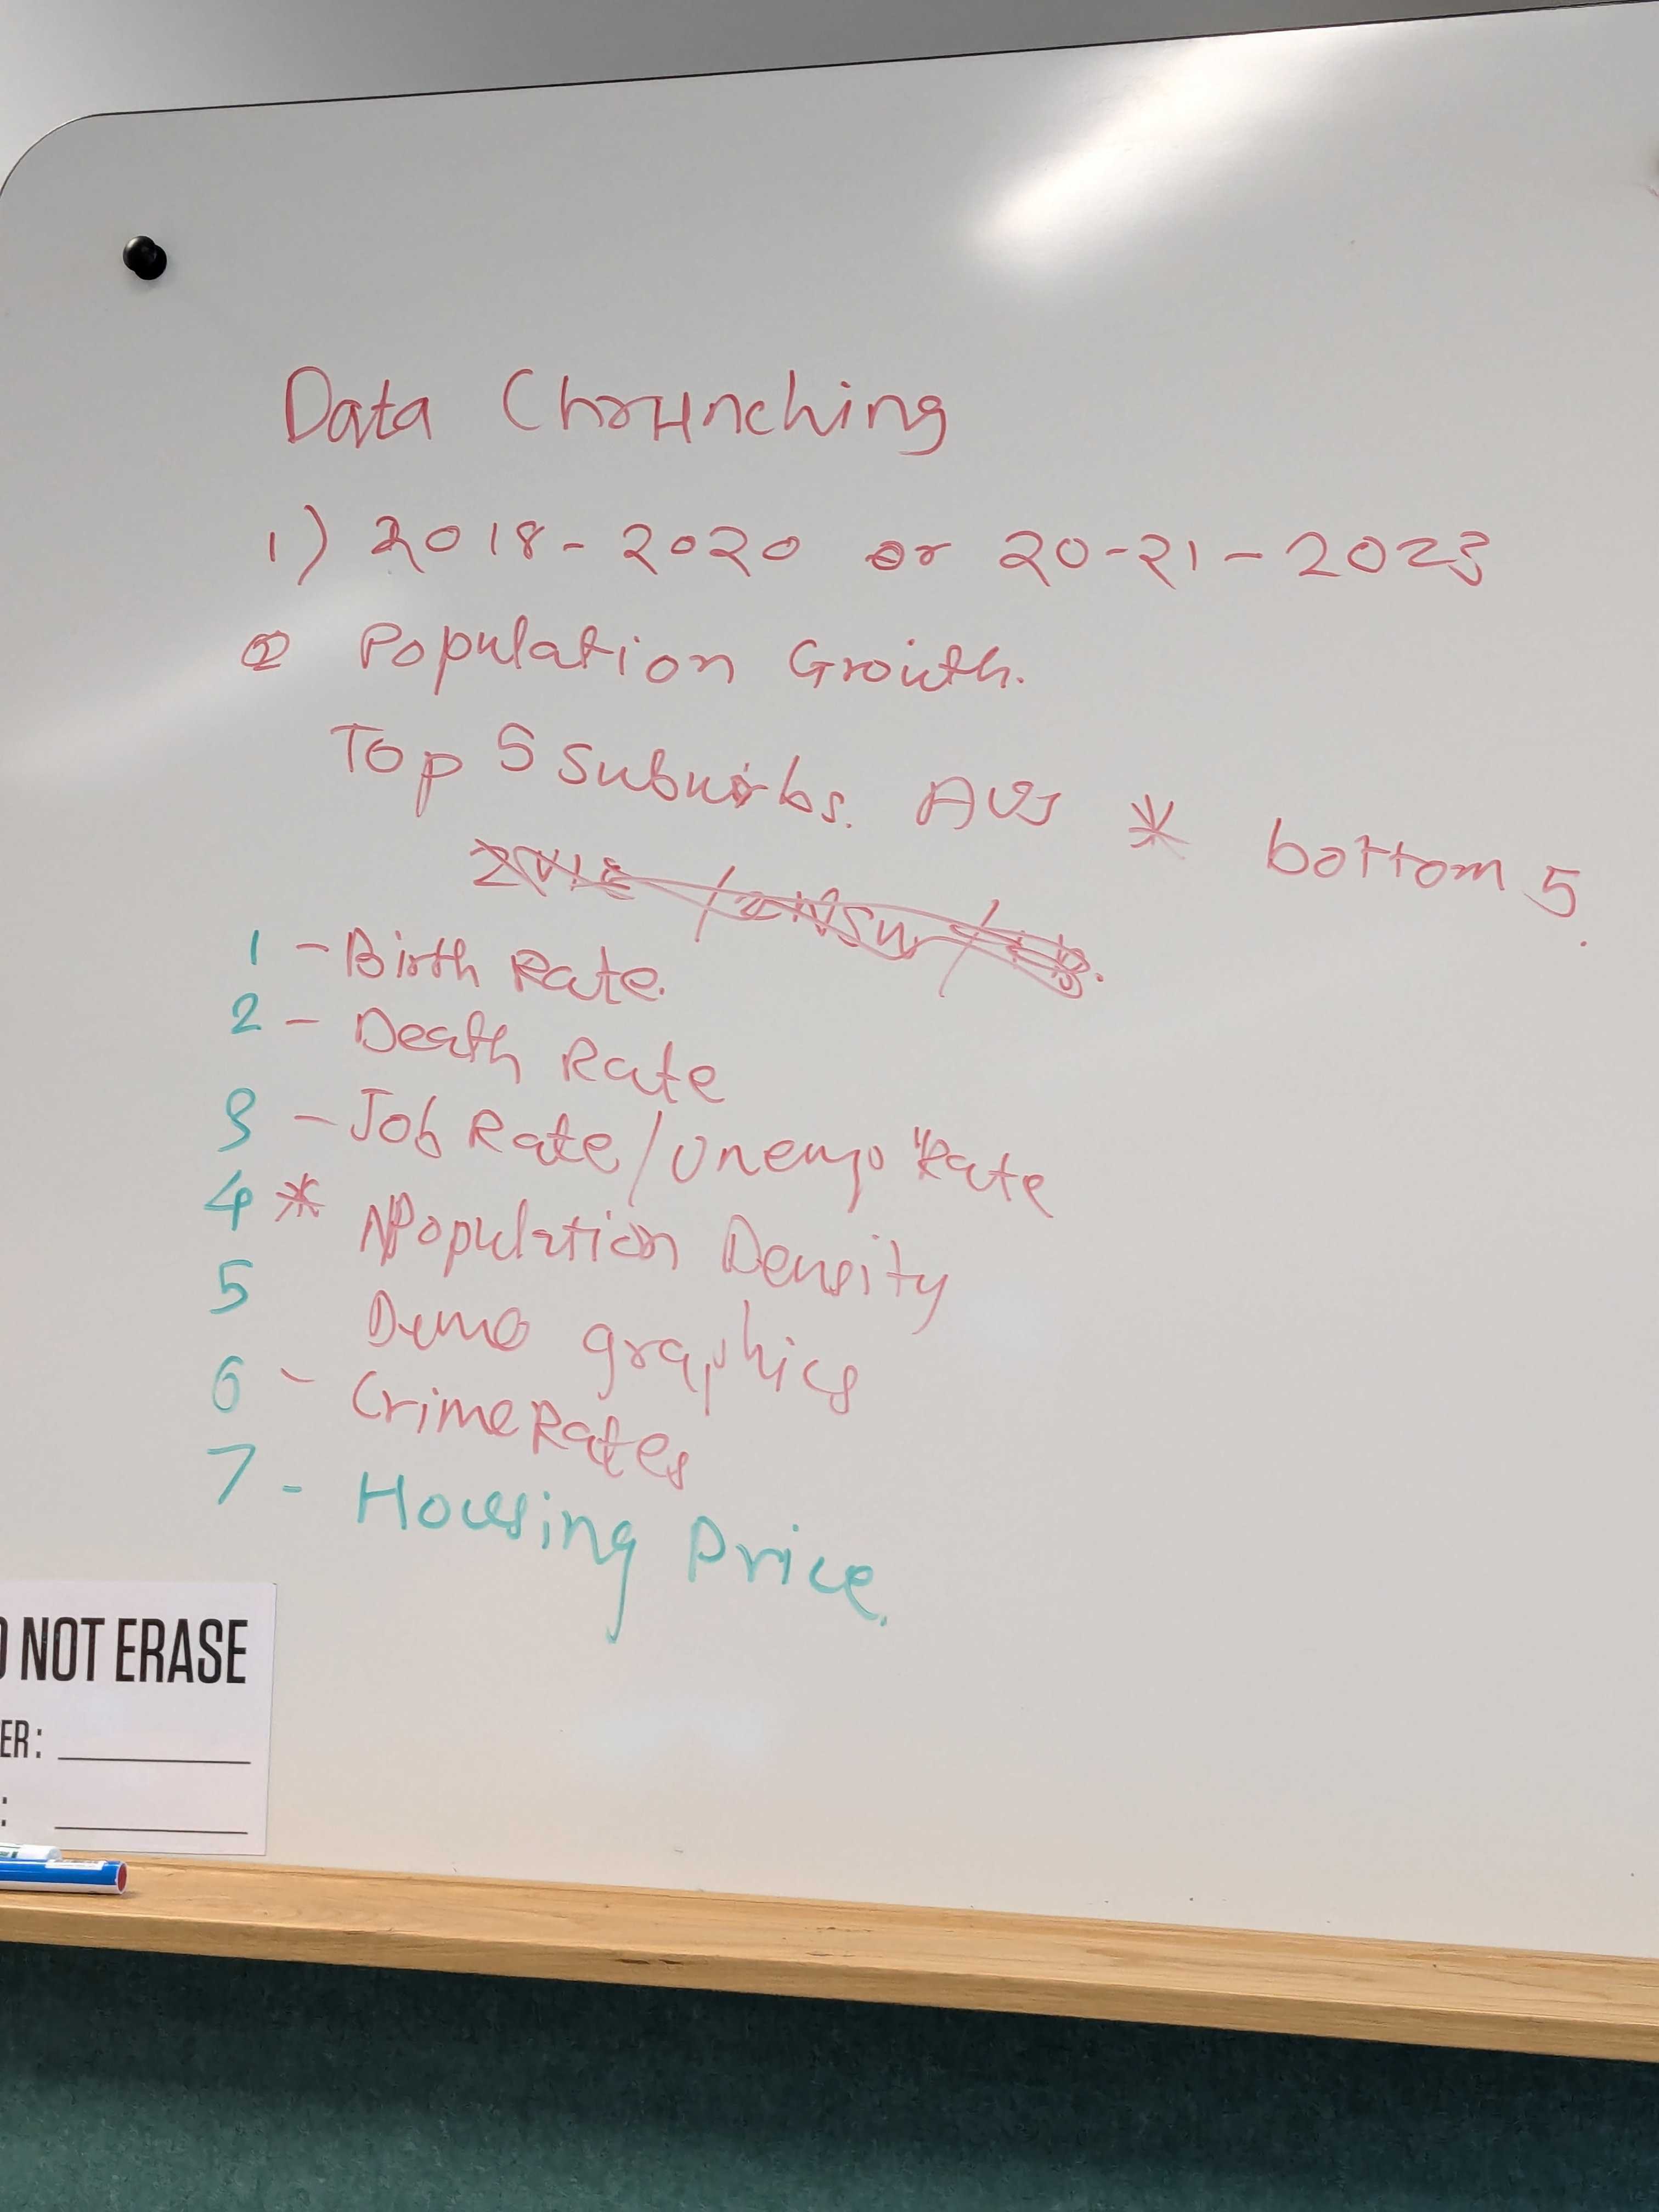 Data Chrunching
1) 2018-2020 or 20-21-2023
② Population Growth.
Top 5 suburbs. AUS * bottom 5.
1 - Birth Rate.
2 - Death Rate
3 - Job Rate/Unemp Rate
4 * Population Density
5 Demo graphics
6 - Crime Rates
7 - Housing Price.
NOT ERASE
ER:
: